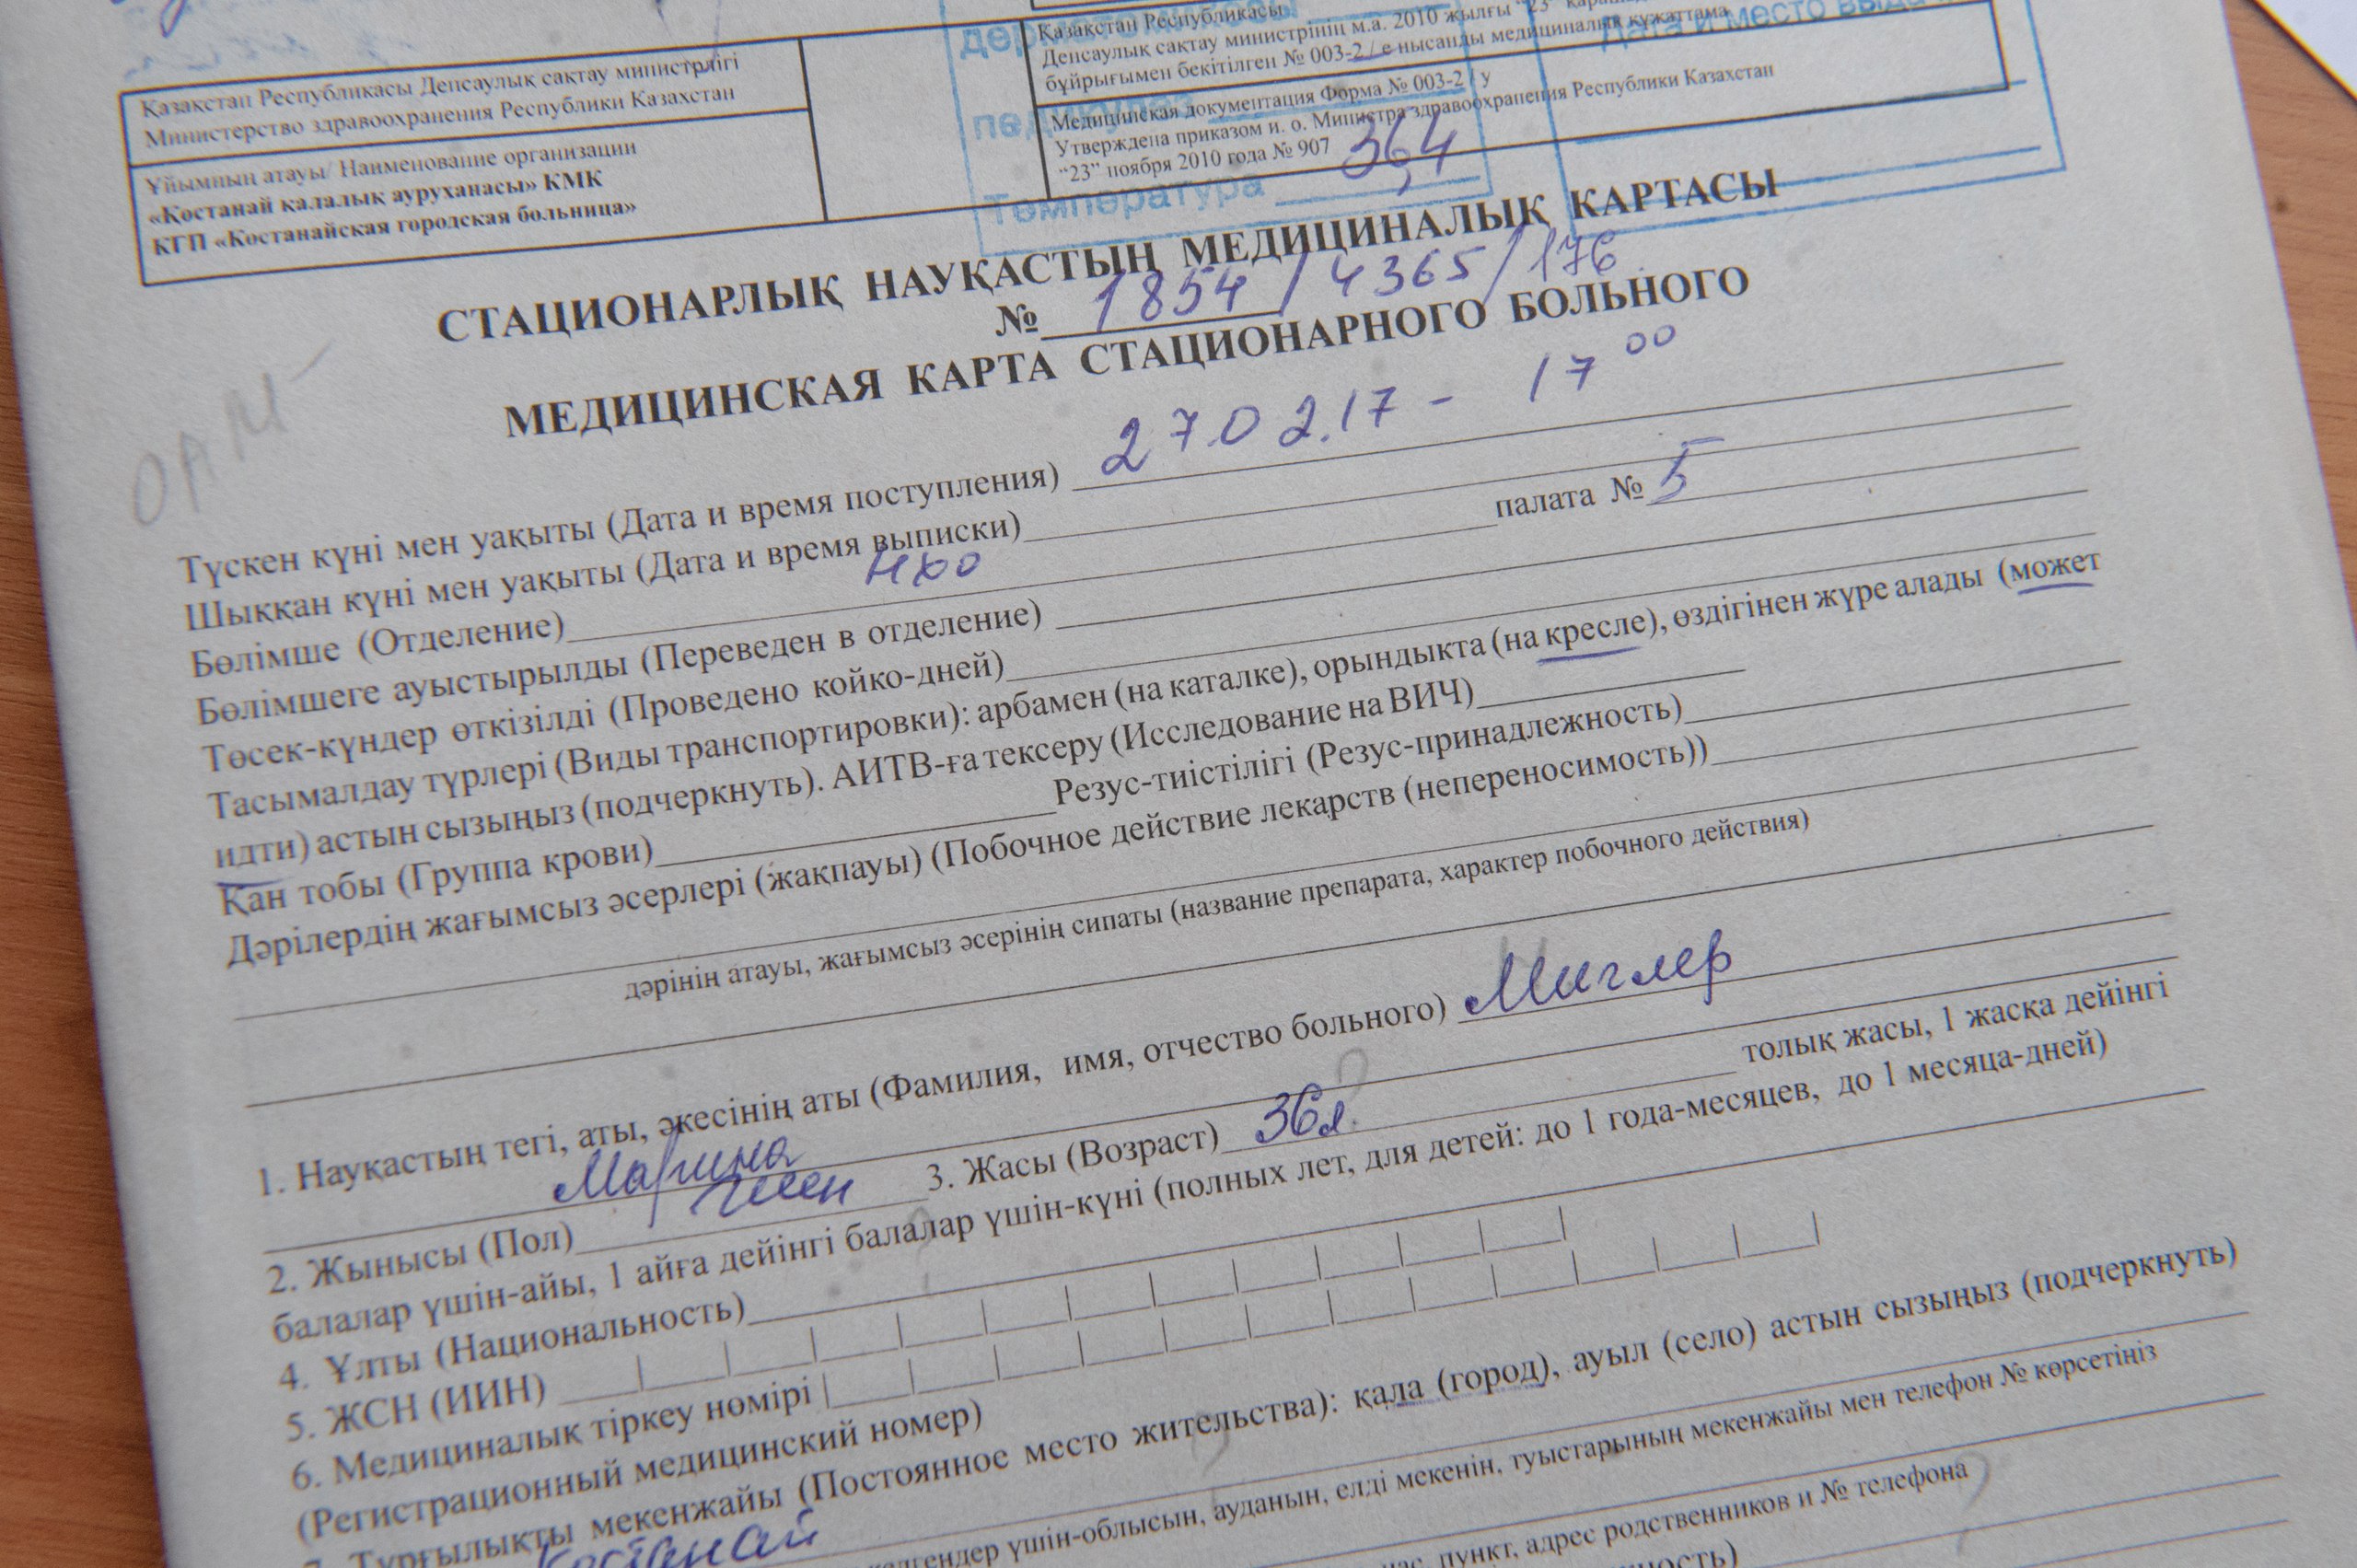 Қазақстан Республикасы Денсаулық сақтау министрлігі
Министерство здравоохранения Республики Казахстан
Ұйымның атауы/ Наименование организации
«Қостанай қалалық ауруханасы» КМК
КГП «Костанайская городская больница»
Қазақстан Республикасы
Денсаулық сақтау министрінің м.а. 2010 жылғы "23"
бұйрығымен бекітілген № 003-2 / е нысанды медициналық құжаттама
Медицинская документация Форма № 003-2 / у
Утверждена приказом и. о. Министра здравоохранения Республики Казахстан
"23" ноября 2010 года № 907
Дата и место
педикулез
Температура 36,4
СТАЦИОНАРЛЫҚ НАУҚАСТЫҢ МЕДИЦИНАЛЫҚ КАРТАСЫ
№ 1854/4365/176
МЕДИЦИНСКАЯ КАРТА СТАЦИОНАРНОГО БОЛЬНОГО
ОАМ
Түскен күні мен уақыты (Дата и время поступления) 27.02.17 - 17 00
Шыққан күні мен уақыты (Дата и время выписки)
Бөлімше (Отделение) НХО палата № 5
Бөлімшеге ауыстырылды (Переведен в отделение)
Төсек-күндер өткізілді (Проведено койко-дней)
Тасымалдау түрлері (Виды транспортировки): арбамен (на каталке), орындықта (на кресле), өздігінен жүре алады (может
идти) астын сызыңыз (подчеркнуть). АИТВ-ға тексеру (Исследование на ВИЧ)
Қан тобы (Группа крови) Резус-тиістілігі (Резус-принадлежность)
Дәрілердің жағымсыз әсерлері (жақпауы) (Побочное действие лекарств (непереносимость))
дәрінің атауы, жағымсыз әсерінің сипаты (название препарата, характер побочного действия)
1. Науқастың тегі, аты, әкесінің аты (Фамилия, имя, отчество больного) Миглер
Марина
2. Жынысы (Пол) жен 3. Жасы (Возраст) 36л. толық жасы, 1 жасқа дейінгі
балалар үшін-айы, 1 айға дейінгі балалар үшін-күні (полных лет, для детей: до 1 года-месяцев, до 1 месяца-дней)
4. Ұлты (Национальность)
5. ЖСН (ИИН)
6. Медициналық тіркеу нөмірі
(Регистрационный медицинский номер)
7. Тұрғылықты мекенжайы (Постоянное место жительства): қала (город), ауыл (село) астын сызыңыз (подчеркнуть)
Костанай
үшін-облысын, ауданын, елді мекенін, туыстарының мекенжайы мен телефон № көрсетіңіз
пункт, адрес родственников и № телефона